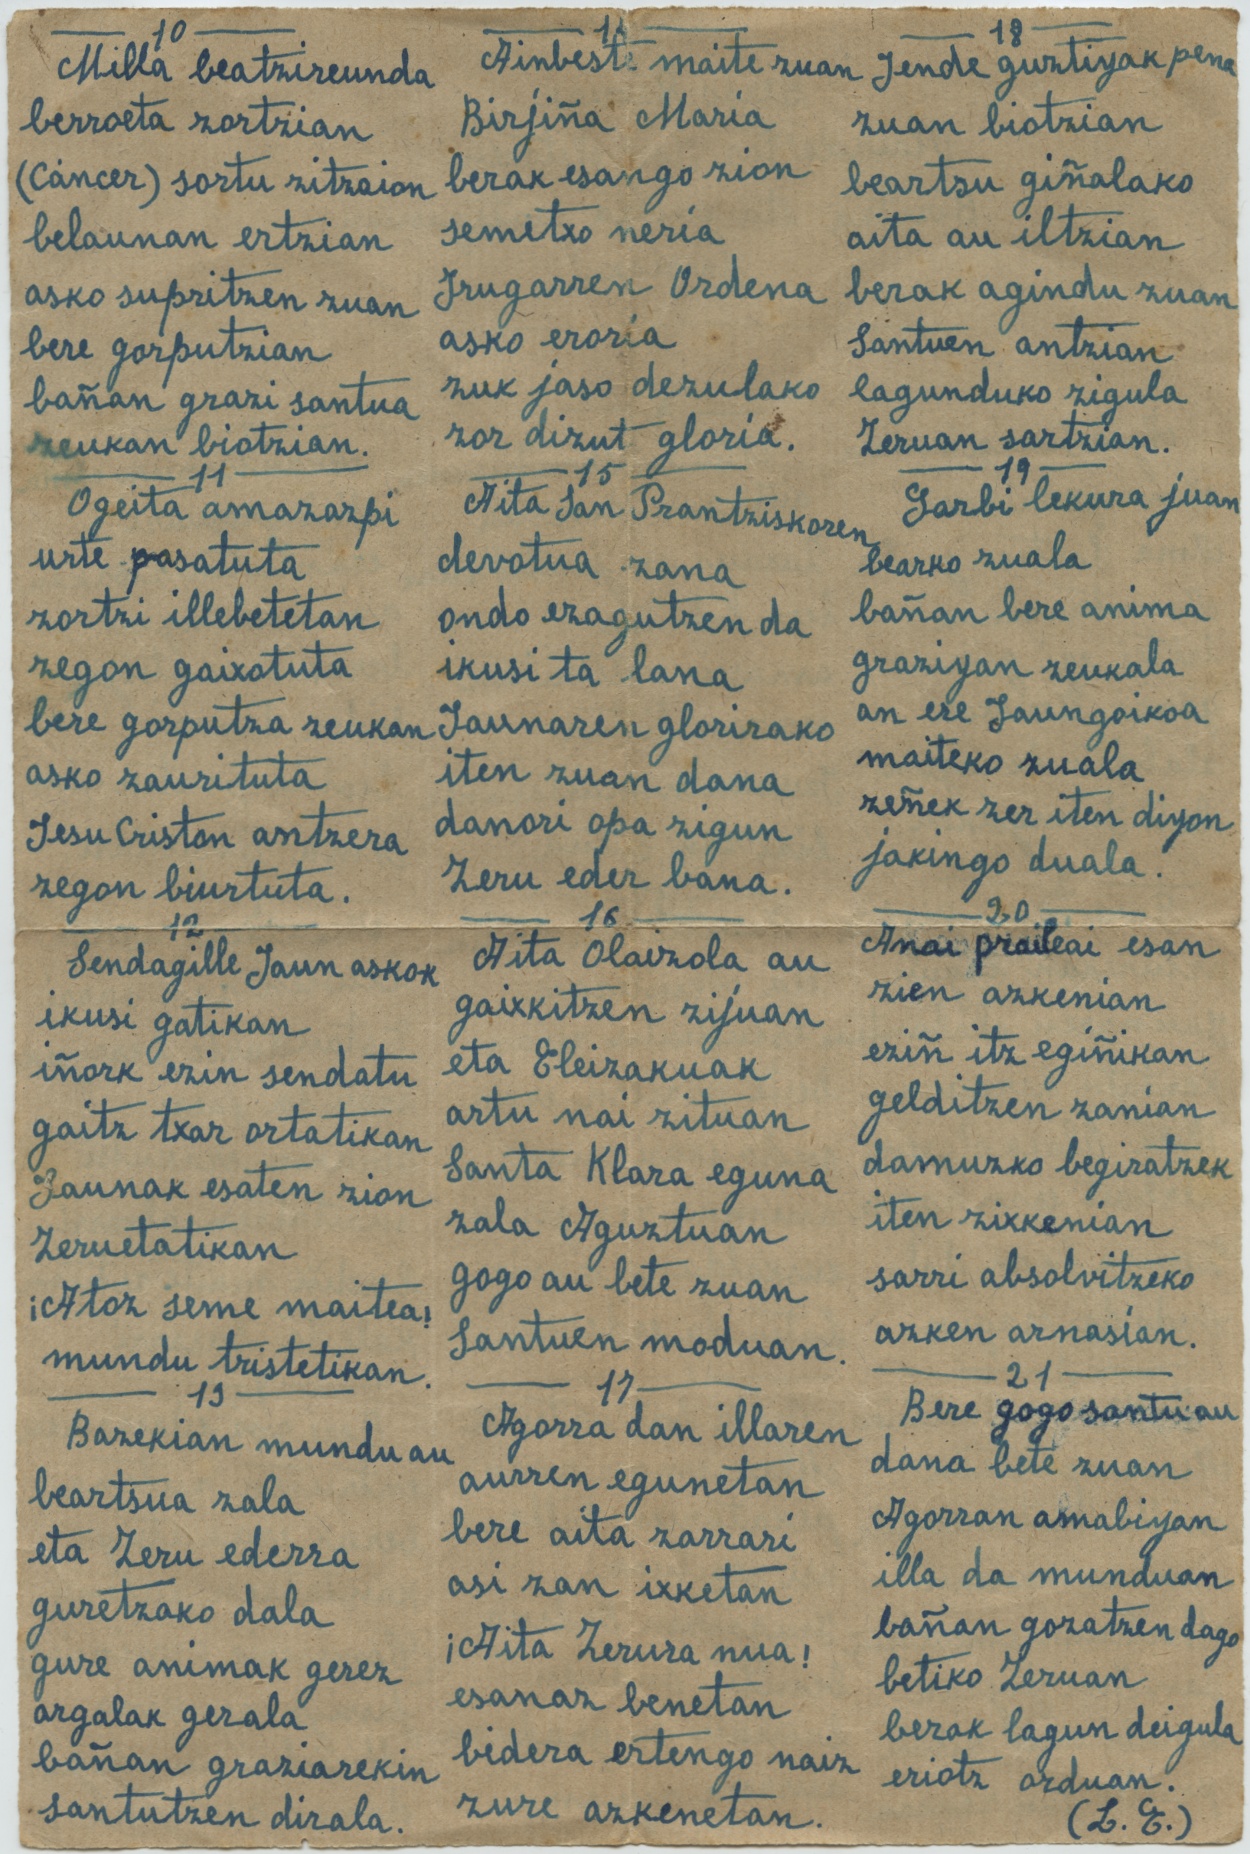 10
Milla beatzireunda
berroeta zortzian
(Cáncer) sortu zitzaion
belaunan ertzian
asko supritzen zuan
bere gorputzian
bañan grazi santua
zeukan biotzian.
11
Ogeita amazazpi
urte pasatuta
zortzi illebetetan
zegon gaixotuta
bere gorputza zeukan
asko zaurituta
Jesu Criston antzera
zegon biurtuta.
12
Sendagille Jaun askok
ikusi gatikan
iñork ezin sendatu
gaitz txar ortatikan
Jaunak esaten zion
Zeruetatikan
¡Atoz seme maitea!
mundu tristetikan.
13
Bazekian mundu au
beartsua zala
eta Zeru ederra
guretzako dala
gure animak gerez
argalak gerala
bañan graziarekin
santutzen dirala.
14
Ainbeste maite zuan
Birjiña María
berak esango zion
semetxo nería
Irugarren Ordena
asko eroría
zuk jaso dezulako
zor dizut gloría.
15
Aita San Prantziskoren
devotua zana
ondo ezagutzen da
ikusi ta lana
Jaunaren glorirako
iten zuan dana
danori opa zigun
Zeru eder bana.
16
Aita Olaizola au
gaixkitzen zijuan
eta Eleizakuak
artu nai zituan
Santa Klara eguna
zala Aguztuan
gogo au bete zuan
Santuen moduan.
17
Agorra dan illaren
aurren egunetan
bere aita zarrari
asi zan ixketan
¡Aita Zerura nua!
esanaz benetan
bidera ertengo naiz
zure azkenetan.
18
Jende guztiyak pena
zuan biotzian
beartsu giñalako
aita au iltzian
berak agindu zuan
Santuen antzian
lagunduko zigula
Zeruan sartzian.
19
Garbi lekura juan
bearko zuala
bañan bere anima
graziyan zeukala
an ere Jaungoikoa
maiteko zuala
zeñek zer iten diyon
jakingo duala.
20
Anai praileai esan
zien azkenian
eziñ itz egiñikan
gelditzen zanian
damuzko begiratzek
iten zixkenian
sarri absolvitzeko
azken arnasían.
21
Bere gogo santu au
dana bete zuan
Agorran amabiyan
illa da munduan
bañan gozatzen dago
betiko Zeruan
berak lagun deigula
eriotz orduan.
(L. E.)